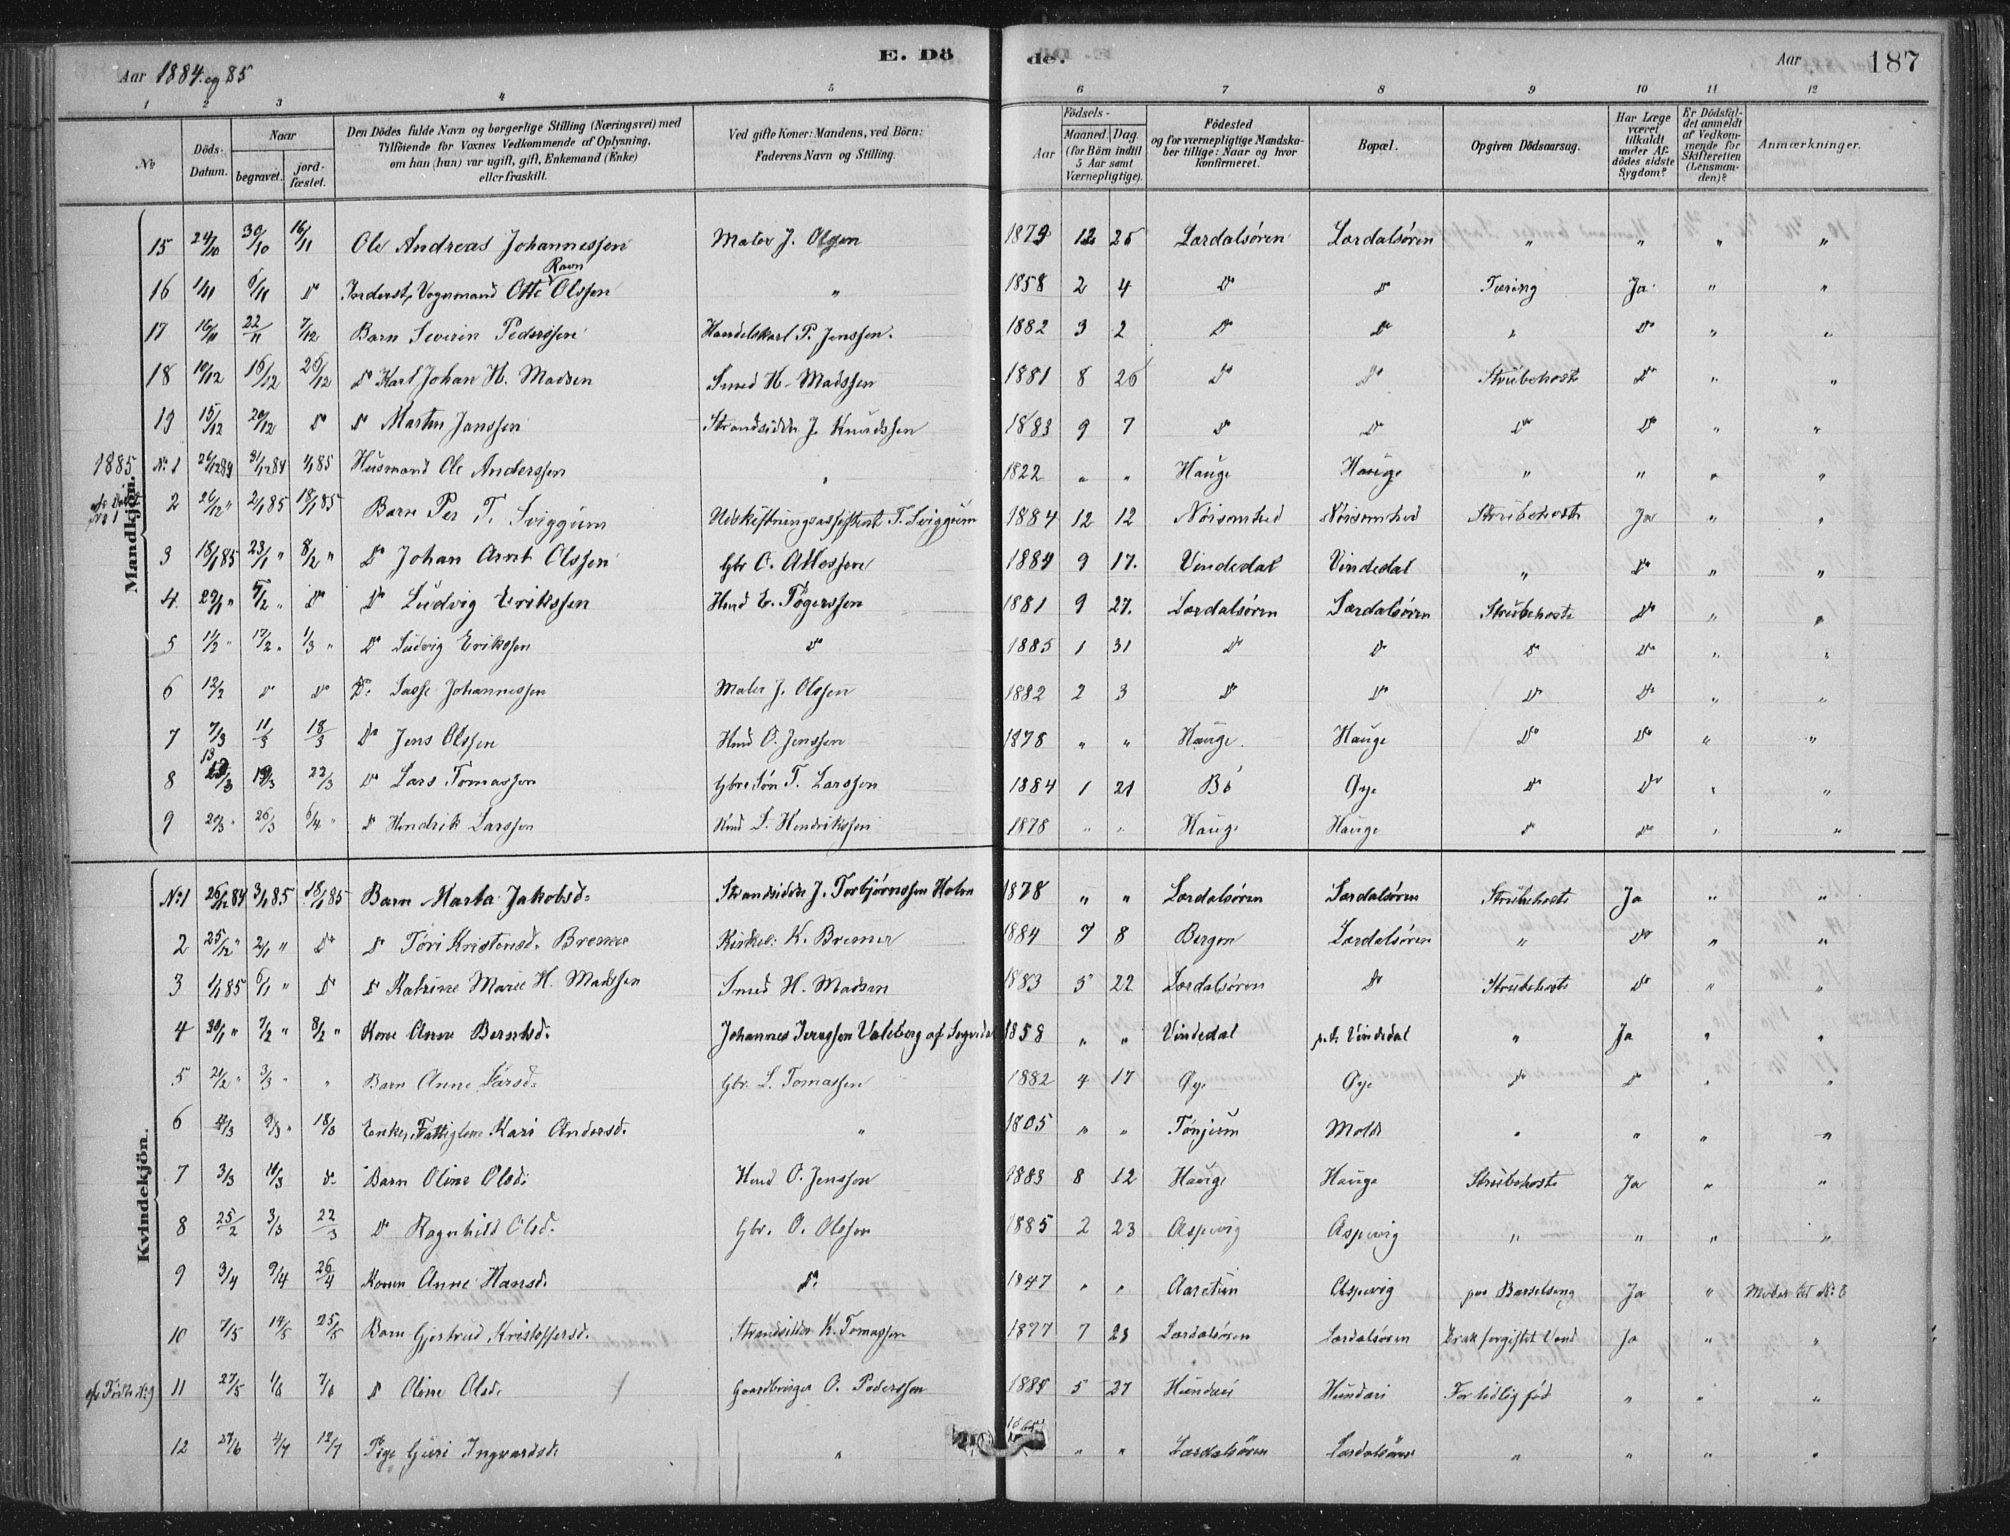 Aar 1884 og 85
E. Dö
de.
Aar
187
1 2 3 4 5 6 7 8 9 10 11 12
No
Döds-Datum.
Naar
begravet.
jord-fæstet.
Den Dödes fulde Navn og borgerlige Stilling (Næringsvei) med
Tilföiende for Voxnes Vedkommende af Oplysning,
om han (hun) var ugift, gift, Enkemand (Enke)
eller fraskilt.
Ved gifte Koner: Mandens, ved Börn:
Faderens Navn og Stilling.
Födsels-
Aar
Maaned. Dag.
(for Börn indtil
5 Aar samt
Værnepligtige).
Födested
og for værnepligtige Mandska-
ber tillige: Naar og hvor
konfirmeret.
Bopæl.
Opgiven Dödsaarsag.
Har Læge
været
tilkaldt
under Af-
dödes sidste
Sygdom?
Er Dödsfal-
det anmeldt
af Vedkom-
mende for
Skifteretten
(Lensman-
den)?
Anmærkninger.
Mandkjön.
15 24/10 30/10 16/11 Ole Andreas Johannessen Maler J. Olsen 1879 12 25 Lærdalsøren Lærdalsøren " " " "
16 1/11 6/11 do Inderst, Vognmand Otte Ravn Olssen " 1858 2 4 do do Tæring Ja " "
17 16/11 22/11 7/12 Barn Severin Pederssen Handelskarl P. Jenssen. 1882 3 2 do do " do " "
18 10/12 16/12 26/12 do Karl Johan H. Madsen Smed H. Madssen 1881 8 26 do do Strubehoste do " "
19 15/12 20/12 do do Martin Janssen Strandsidder J. Knudssen 1883 9 7 do do do do " "
1885 No 1 26/12 84 31/12 84 1/1 85 Husmand Ole Anderssen " 1822 " " Hauge Hauge " " " "
2 26/12 " 2/1 85 18/1 85 Barn Per T. Sviggum Udskiftningsassistent T. Sviggum 1884 12 12 Nörsomhed Nörsomhed Strubehoste Ja " "
3 18/1 85 23/1 " 8/2 " do Johan Arnt Olssen Gbr O. Allessen 1884 9 17. Vindedal Vindedal " do " "
4 29/1 " 5/2 " do do Ludvig Erikssen Hmd E. Tögerssen 1881 9 27. Lærdalsøren Lærdalsøren Strubehoste do " "
5 11/2 " 17/2 " 1/3 " do Ludvig Erikssen do 1885 1 31 do do do do " "
6 12/2 do do do Lasse Johannessen Maler J. Olssen 1882 2 3 do do do do " "
7 7/3 11/3 18/3 do Jens Olssen Hmd O. Jenssen 1878 " " Hauge. Hauge do do " "
8 13/3 19/3 22/3 do Lars Tomassen Gbrs Søn T. Larssen 1884 1 21 Bö Øye do do " "
9 20/3 " 26/3 6/4 " do Hendrik Larssen Hmd L. Hendrikssen 1878 " " Hauge Hauge do do " "
Kvindekjön.
No 1 26/12 84 3/1 85 18/1 85 Barn Marta Jakobsd. Strandsidder J. Torbjørnssen Holm 1878 " " Lærdalsøren Lærdalsøren Strubehoste Ja " "
2 25/12 " 2/1 " do do Töri Kristensd. Bremer K. Bremer 1884 7 8 Bergen Lærdalsøren " do " "
3 1/1 85 6/1 " do do Katrine Marie H. Madssen Smed H. Madsen 1883 5 22 Lærdalsøren do Strubehoste do " "
4 30/1 " 7/2 " 8/2 " Kone Anne Berntsd. Johannes Iversen Valeberg af Sogndal 1858 " " Vindedal Vindedal " Ja " "
5 21/2 " 3/3 " " Barn Anne Larsd. Gbr. L. Tomassen 1882 4 17 Øye Øye do do " "
6 4/3 9/3 " 18/3 Enke, Fattiglem Kari Andersd. " 1805 " " Tönjum Molde " " " "
7 3/3 10/3 do Barn Oline Olsd. Hmd O. Jenssen 1883 8 12 Hauge Hauge Strubehoste Ja " "
8 25/2 3/3 22/3 do Ragnhild Olsd. Gbr. O. Olssen 1885 2 23 Aspevig Aspevig " " " "
9 3/4 9/4 26/4 Konen Anne Hansd. do 1847 " " Aaretun Aspevig paa Barselseng Ja " Moder til No 8
10 7/5 14/5 25/5 Barn Gjertrud Kristoffersd. Strandsidder K. Tomassen 1877 7 23 Lærdalsøren Lærdalsøren Drak forgiftet Vand Ja " "
cfr Födte No 9 11 27/5 1/6 7/6 do Oline Olsd. Gaardbruger O. Pederssen 1885 5 27 Hunderi Hunderi For tidlig fød " " "
12 27/6 4/7 12/7 Pige Guri Ingvardsd. " " " Lærdalsören Lærdalsören " " " "